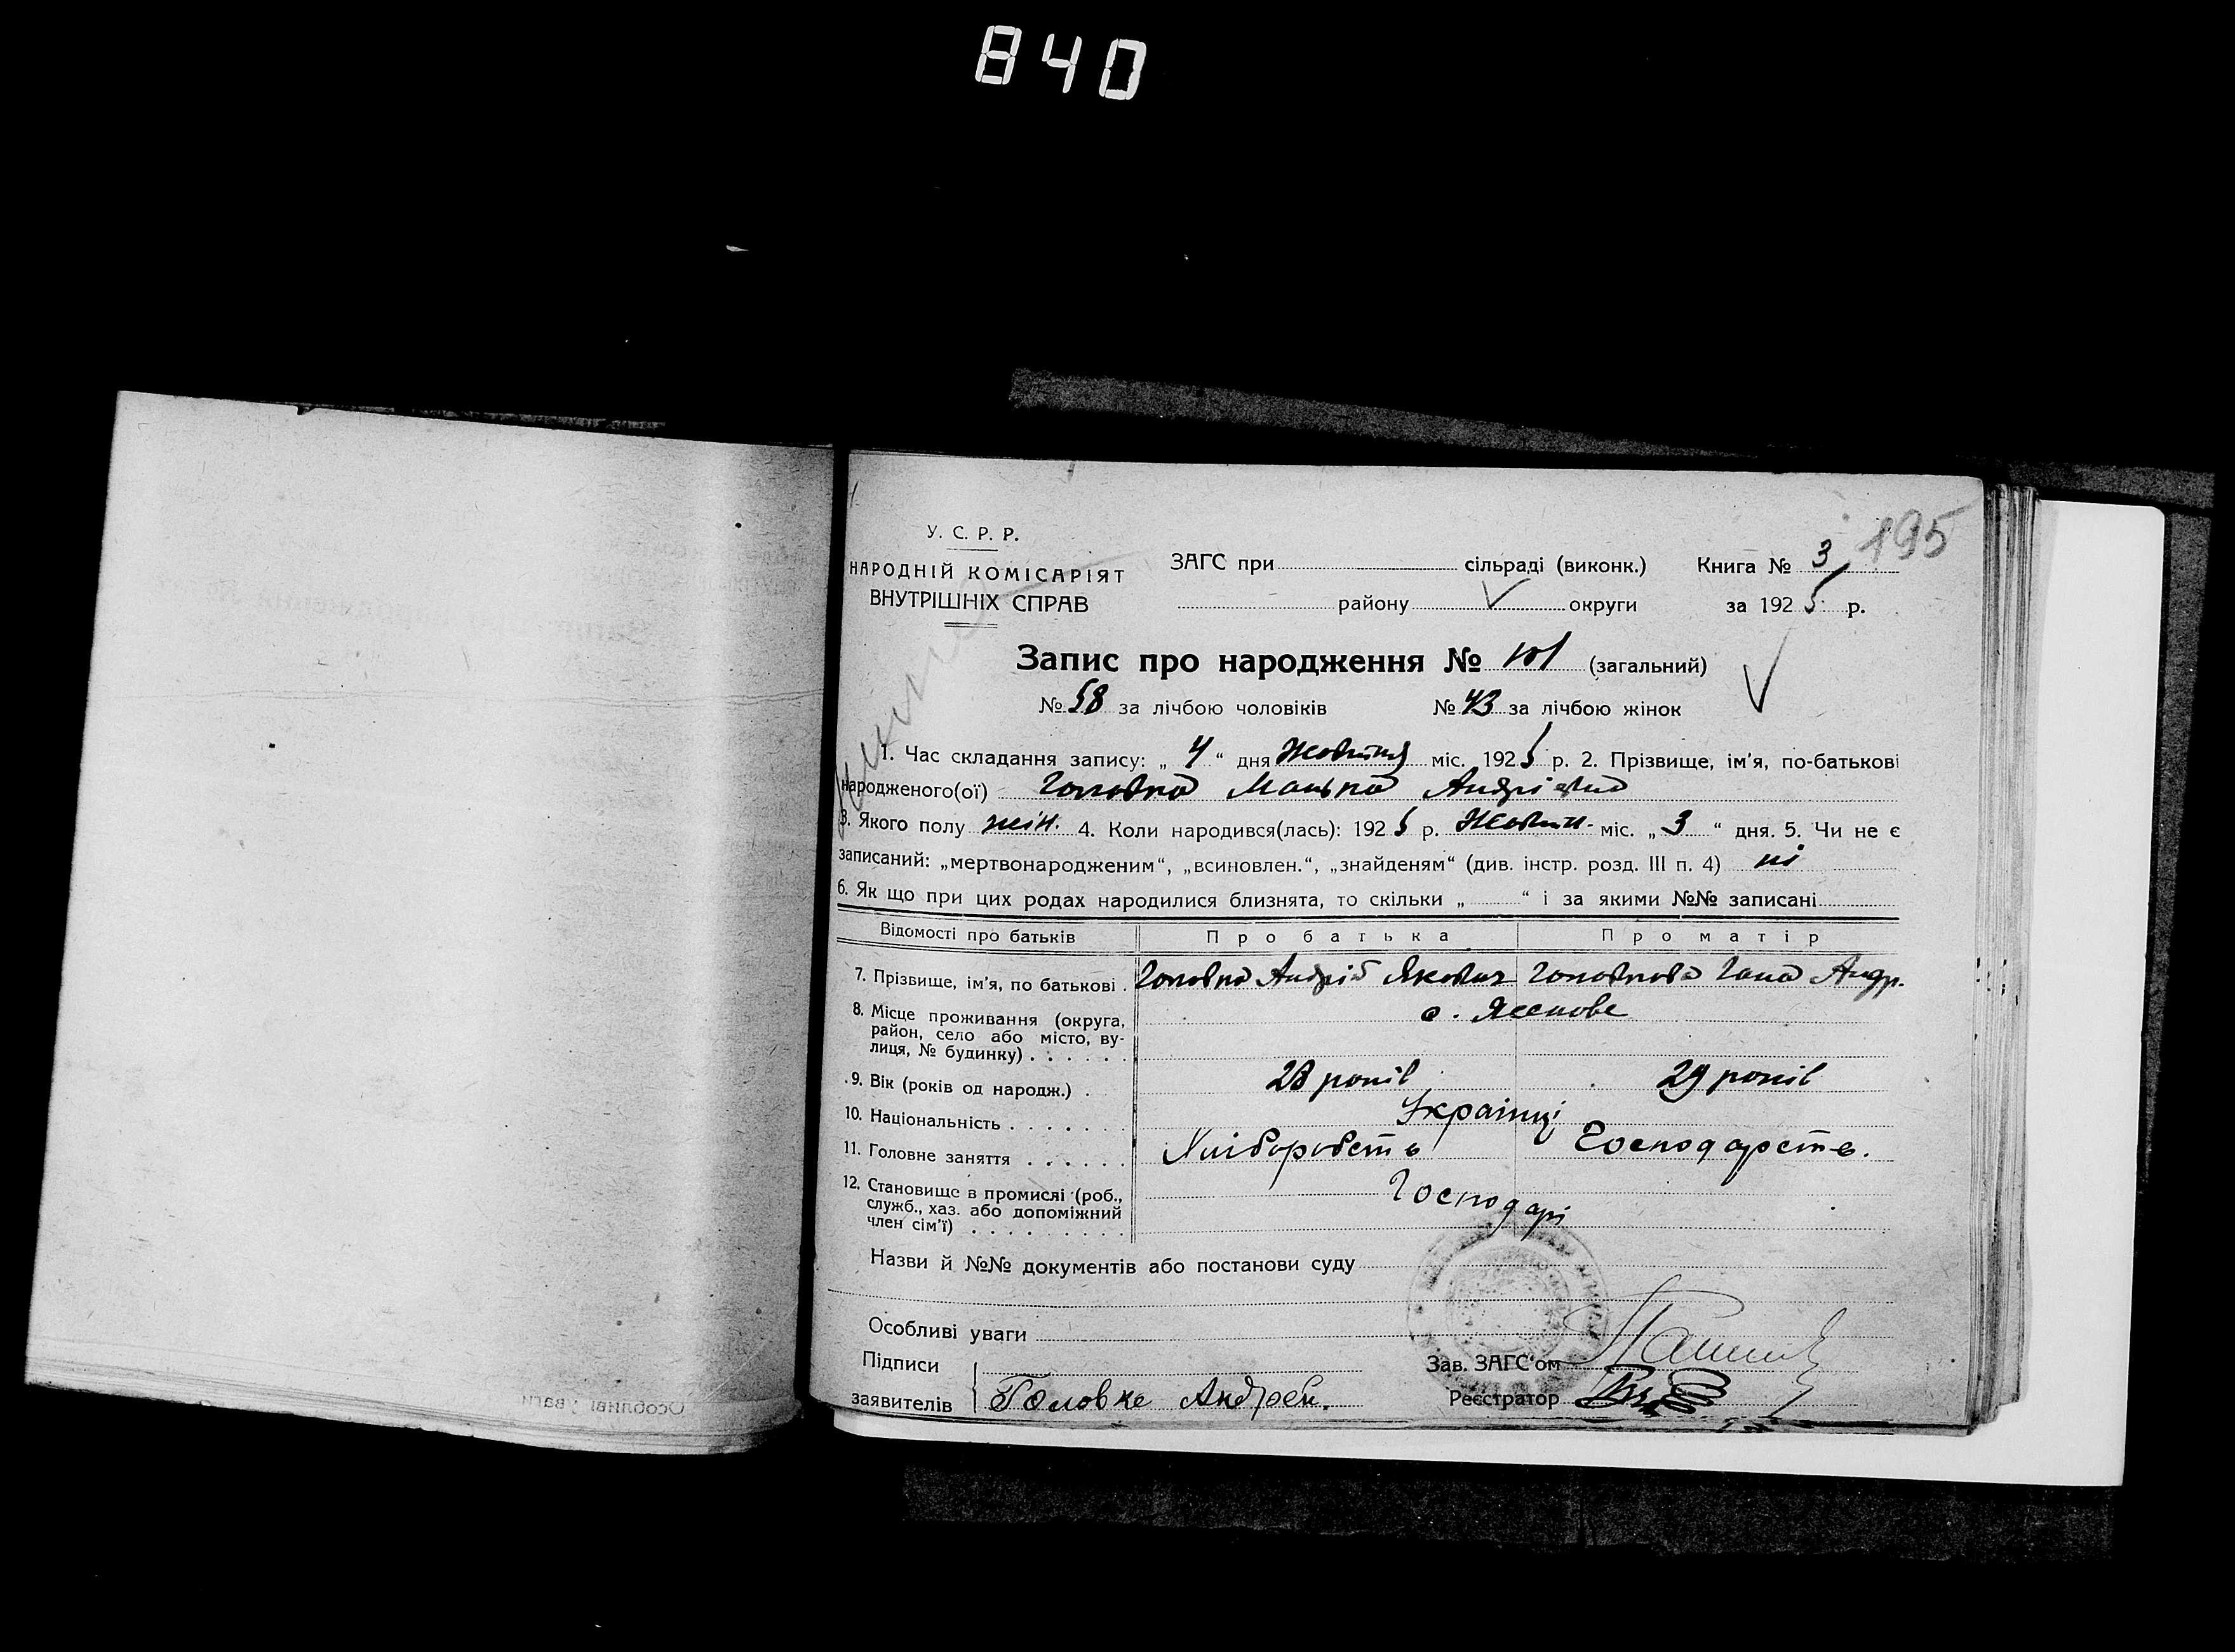 840
195
У. С. Р. Р.
НАРОДНІЙ КОМІСАРІЯТ
ВНУТРІШНІХ СПРАВ
ЗАГС при сільраді (виконк.) Книга № 3
району округи за 1925 р.
Запис про народження № 101 (загальний)
№ 58 за лічбою чоловіків № 43 за лічбою жінок
1. Час складання запису: „ 4 “ дня Жовтня міс. 1925 р. 2. Прізвище, ім'я, по-батькові
народженого(ої) Головко Андріевна
3. Якого полу жін. 4. Коли народився(лась): 1925 р. Жовтн. міс. „ 3 “ дня. 5. Чи не є
записаний: „мертвонародженим“, „всиновлен.“, „знайденям“ (див. інстр. розд. III п. 4) ні
6. Як що при цих родах народилися близнята, то скільки „ “ і за якими №№ записані
Відомості про батьків Про батька Про матір
7. Прізвище, ім'я, по батькові . Головко Андрій Якович Головкова Гана Андр.
8. Місце проживання (округа, район, село або місто, вулиця, № будинку) . . . . . . с. Ясенове
9. Вік (років од народж.) . 28 років 29 років
10. Національність . . . . . . . Українці
11. Головне заняття . . . . . . Хліборобств Господарств.
12. Становище в промислі (роб., служб., хаз. або допоміжний член сім'ї) . . . . . . . . . Господарі
Назви й №№ документів або постанови суду
Особливі уваги
Підписи
заявителів Головке Андрей.
Зав. ЗАГС'ом
Реєстратор
Особливі уваги